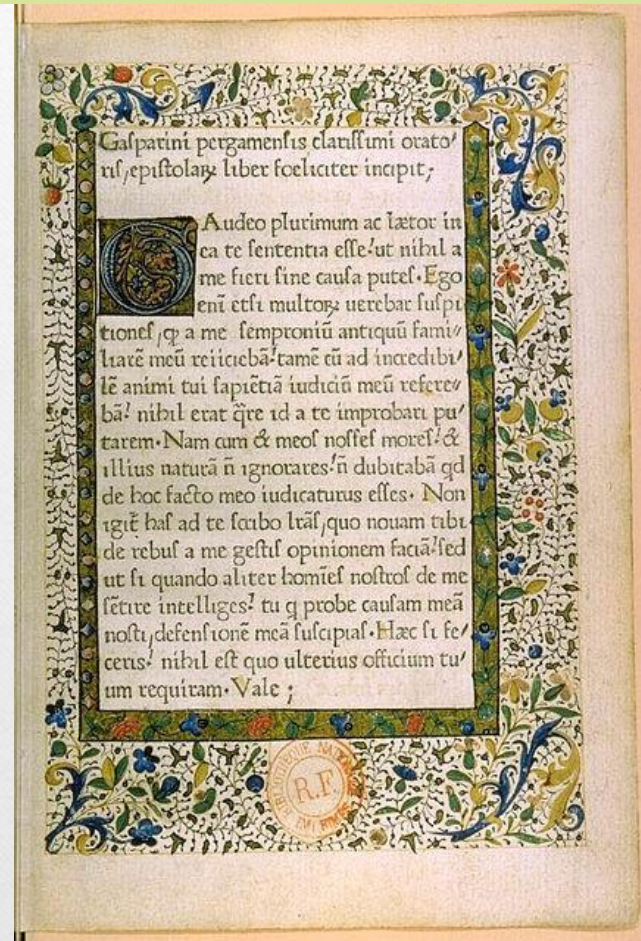 Gaſparini pergamenſis clariſſimi orato'
riſ, epiſtolaꝝ liber foeliciter incipit;
GAudeo plurimum ac lætor in
ea te ſententia eſſe! ut nihil a
me fieri ſine cauſa puteſ. Ego
eni᷒ etſi multoꝝ uerebar ſuſpi
tioneſ, ꝙ a me ſemproniũ antiquũ fami〃
liarẽ meũ reiiciebã! tamẽ cũ ad incredibi'
lẽ animi tui ſapiẽtiã iudiciũ meũ refere〃
bã! nihil erat q̃re id a te improbari pu'
tarem. Nam cum & meoſ noſſeſ moreſ! &
illius naturã ñ ignorares! ñ dubitabã qd
de hoc facto meo iudicaturus eſſes. Non
igit᷑ haſ ad te ſcribo lr̃aſ, quo nouam tibi
de rebuſ a me geſtiſ opinionem faciã! ſed
ut ſi quando aliter homĩeſ noſtroſ de me
ſẽtire intelligeſ! tu q probe cauſam meã
noſti, defenſionẽ meã ſuſcipiaſ. Hæc ſi fe'
ceris! nihil eſt quo ulterius officium tu'
um requiram. Vale;
BIBLIOTHEQUE NATIONALE
R.F.